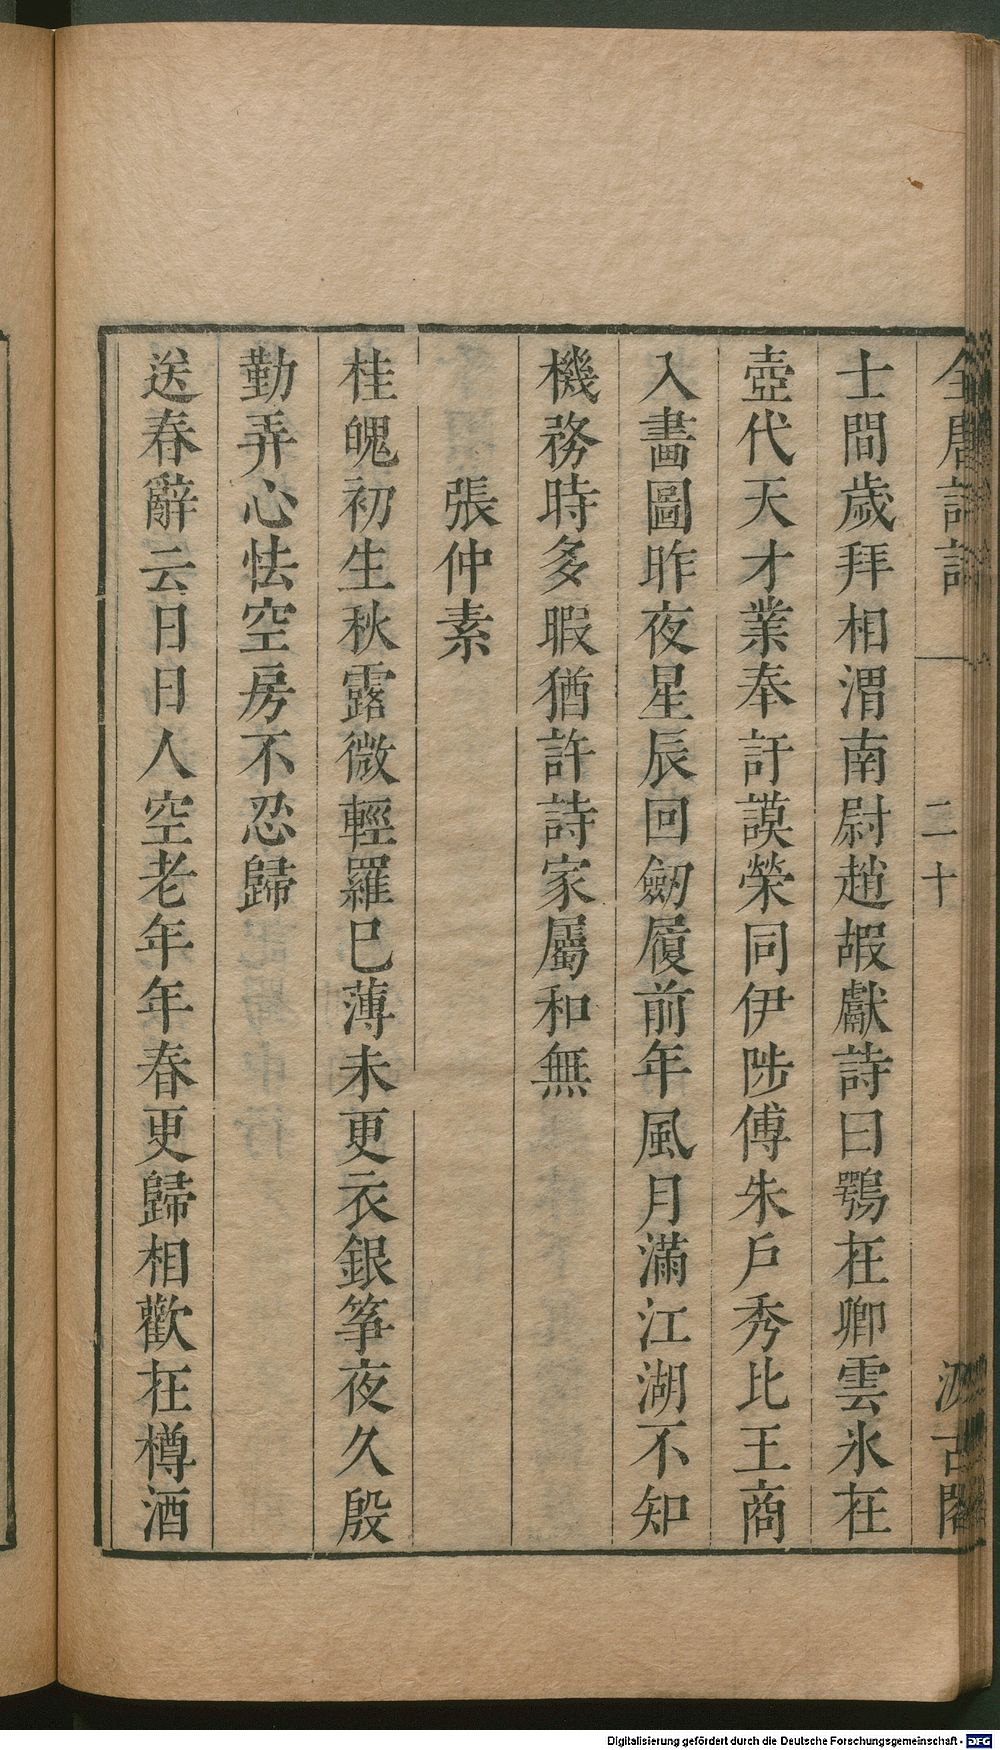 全唐詩話 二十 汲古閣
士間歲拜相渭南尉趙嘏獻詩曰鶚在卿雲氷在
壺代天才業奉訏謨榮同伊陟傅朱戶秀比王商
入畫圖昨夜星辰回劒履前年風月滿江湖不知
機務時多暇猶許詩家屬和無
張仲素
桂魄初生秋露微輕羅巳薄未更衣銀筝夜久殷
勤弄心怯空房不忍歸
送春辭云日日人空老年年春更歸相歡在樽酒
Digitalisierung gefördert durch die Deutsche Forschungsgemeinschaft - DFG